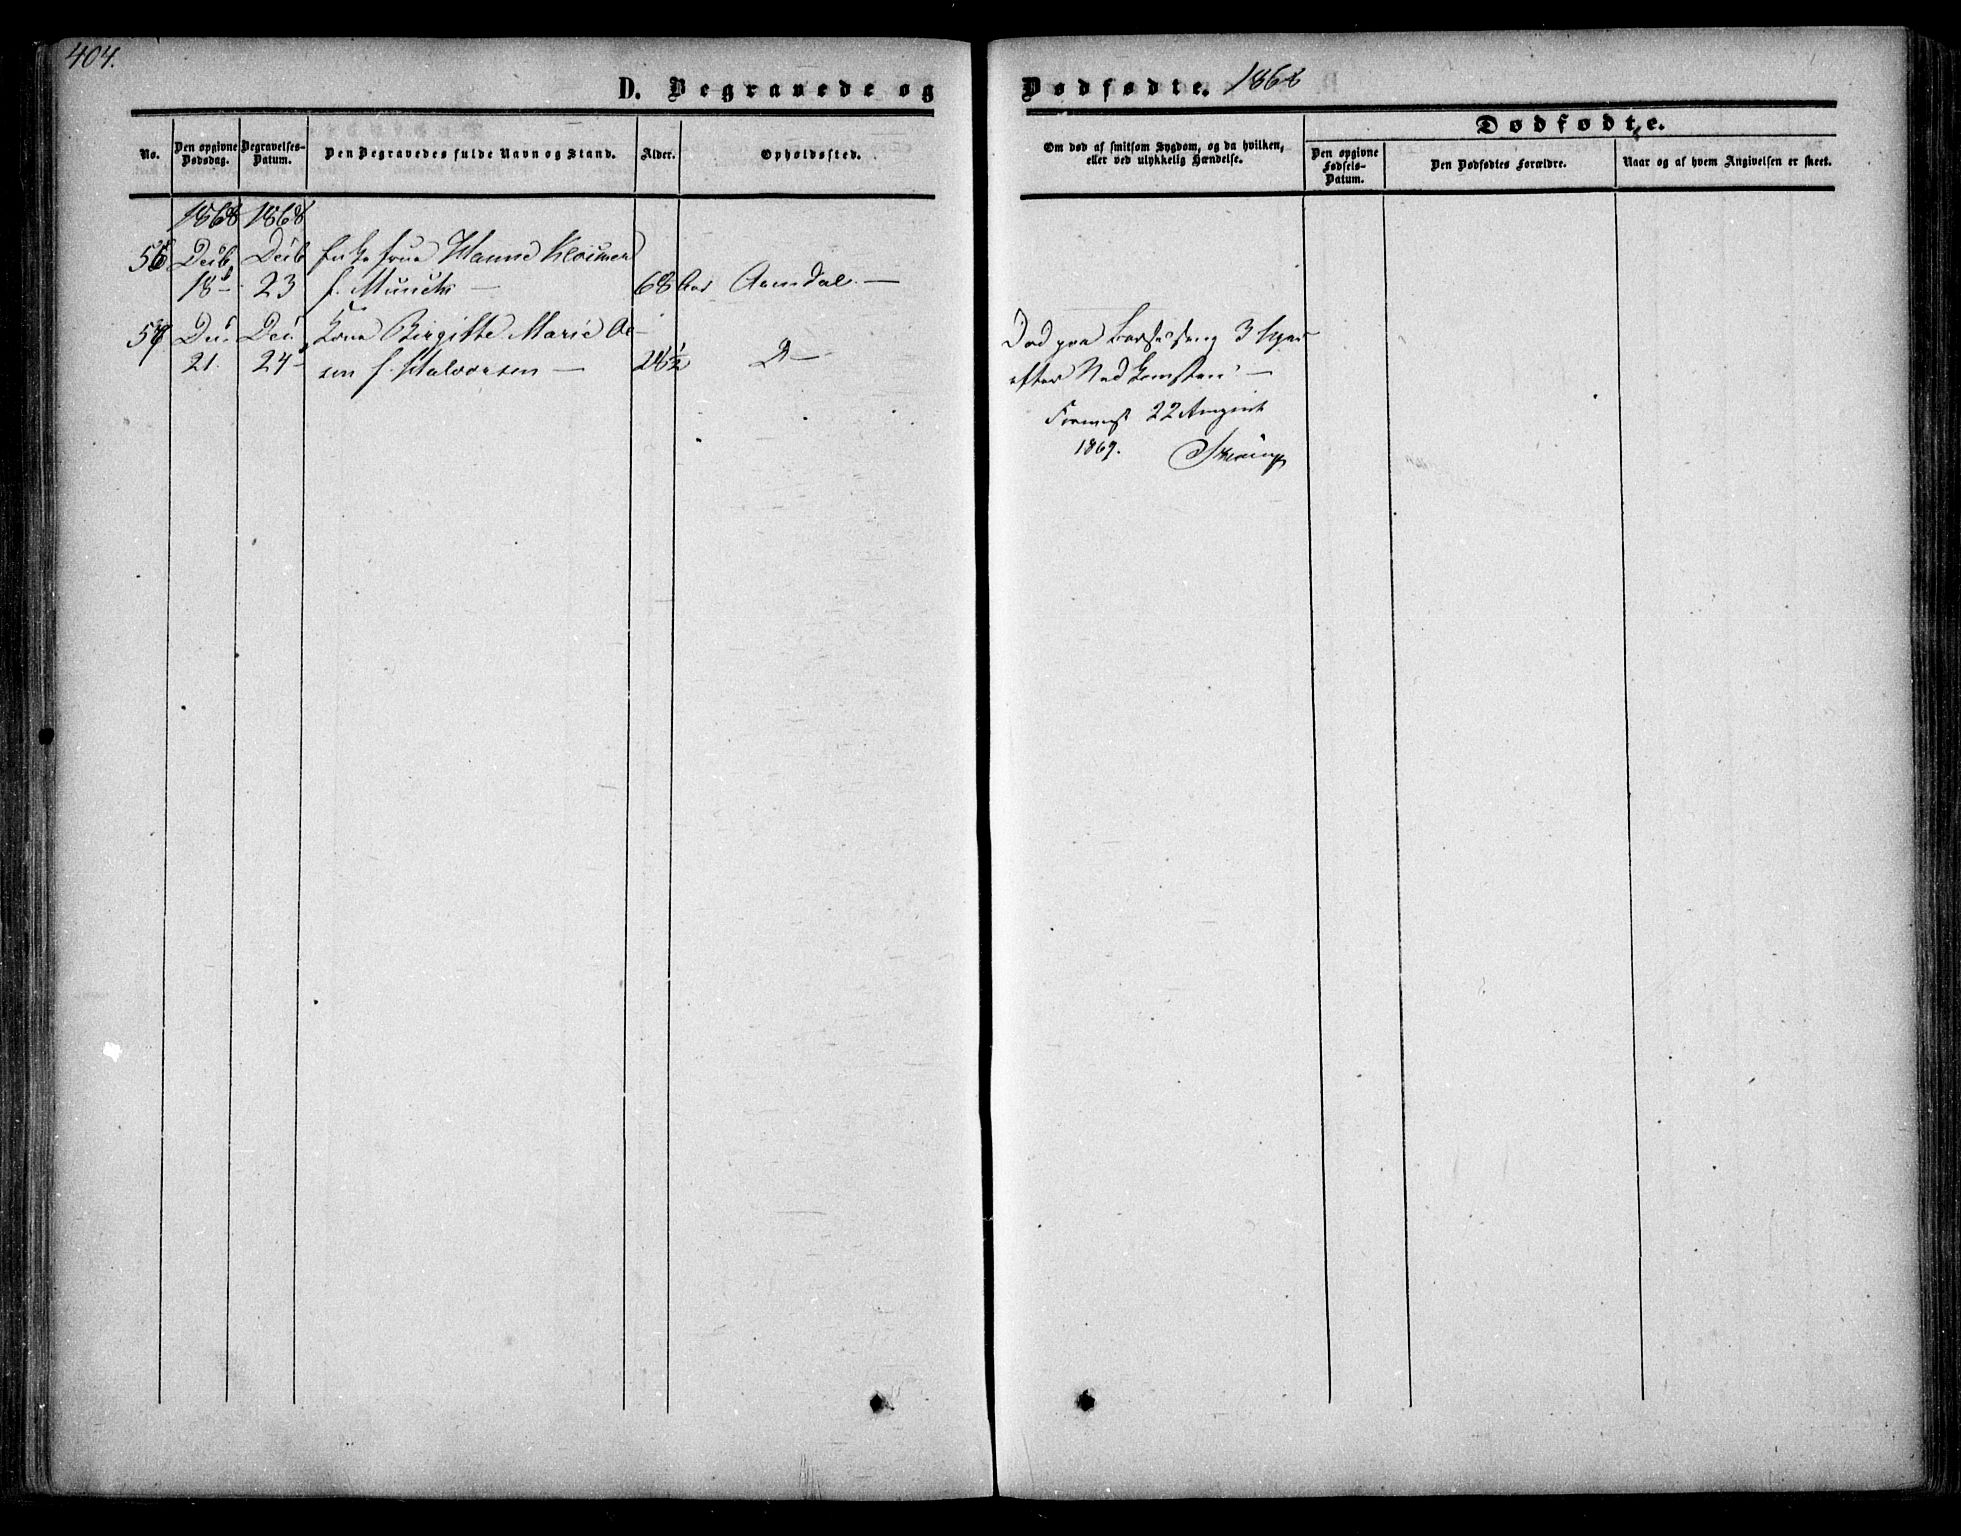 404.
D. Begravede og
Dødfødte. 1868
No.
Den opgivne Dødsdag.
Begravelses-Datum.
Den Begravedes fulde Navn og Stand.
Alder.
Opholdssted.
Om død af smitsom Sygdom, og da hvilken, eller ved ulykkelig Hændelse.
Dødfødte.
Den opgivne Fødsels-Datum.
Den Dødfødtes Forældre.
Naar og af hvem Angivelsen er skeet.
1868 1868
56 Decb Decb Enke frue Hanne
18 23 f. Munch — 68 Aar Arendal —
57 Dec Dec Kone Birgitte Marie Ol-
21. 24 sen f. Halvorsen — 24½ D —
Død paa Barselseng 3 Uger
efter Nedkomsten —
22 August
1869.